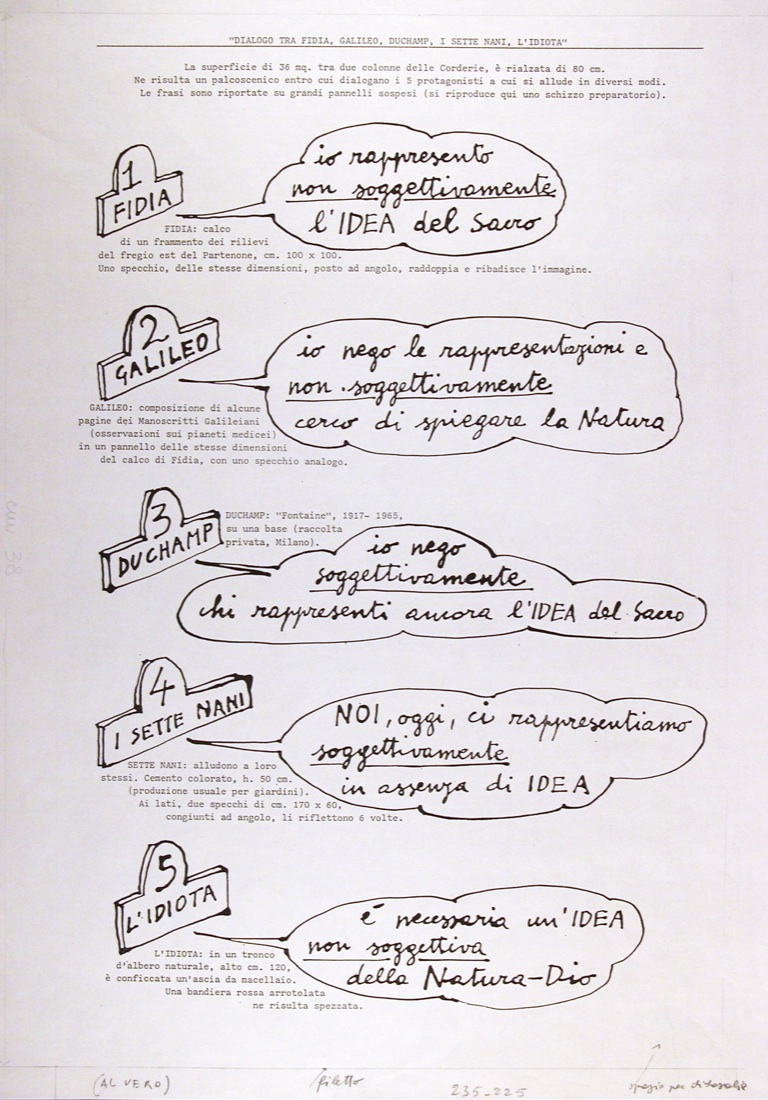 "DIALOGO TRA FIDIA, GALILEO, DUCHAMP, I SETTE NANI, L'IDIOTA"
La superficie di 36 mq. tra due colonne delle Corderie, è rialzata di 80 cm.
Ne risulta un palcoscenico entro cui dialogano i 5 protagonisti a cui si allude in diversi modi.
Le frasi sono riportate su grandi pannelli sospesi (si riproduce qui uno schizzo preparatorio).
1
FIDIA
io rappresento
non soggettivamente
l'IDEA del Sacro
FIDIA: calco
di un frammento dei rilievi
del fregio est del Partenone, cm. 100 x 100.
Uno specchio, delle stesse dimensioni, posto ad angolo, raddoppia e ribadisce l'immagine.
2
GALILEO
io nego le rappresentazioni e
non soggettivamente
cerco di spiegare la Natura
GALILEO: composizione di alcune
pagine dei Manoscritti Galileiani
(osservazioni sui pianeti medicei)
in un pannello delle stesse dimensioni
del calco di Fidia, con uno specchio analogo.
3
DUCHAMP
DUCHAMP: "Fontaine", 1917- 1965,
su una base (raccolta
privata, Milano).
io nego
soggettivamente
chi rappresenti ancora l'IDEA del Sacro
4
I SETTE NANI
NOI, oggi, ci rappresentiamo
soggettivamente
in assenza di IDEA
SETTE NANI: alludono a loro
stessi. Cemento colorato, h. 50 cm.
(produzione usuale per giardini).
Ai lati, due specchi di cm. 170 x 60,
congiunti ad angolo, li riflettono 6 volte.
5
L'IDIOTA
é necessaria un'IDEA
non soggettiva
della Natura-Dio
L'IDIOTA: in un tronco
d'albero naturale, alto cm. 120,
è conficcata un'ascia da macellaio.
Una bandiera rossa arrotolata
ne risulta spezzata.
cm 38
(AL VERO)
filetto
235-225
spazio per didascalie